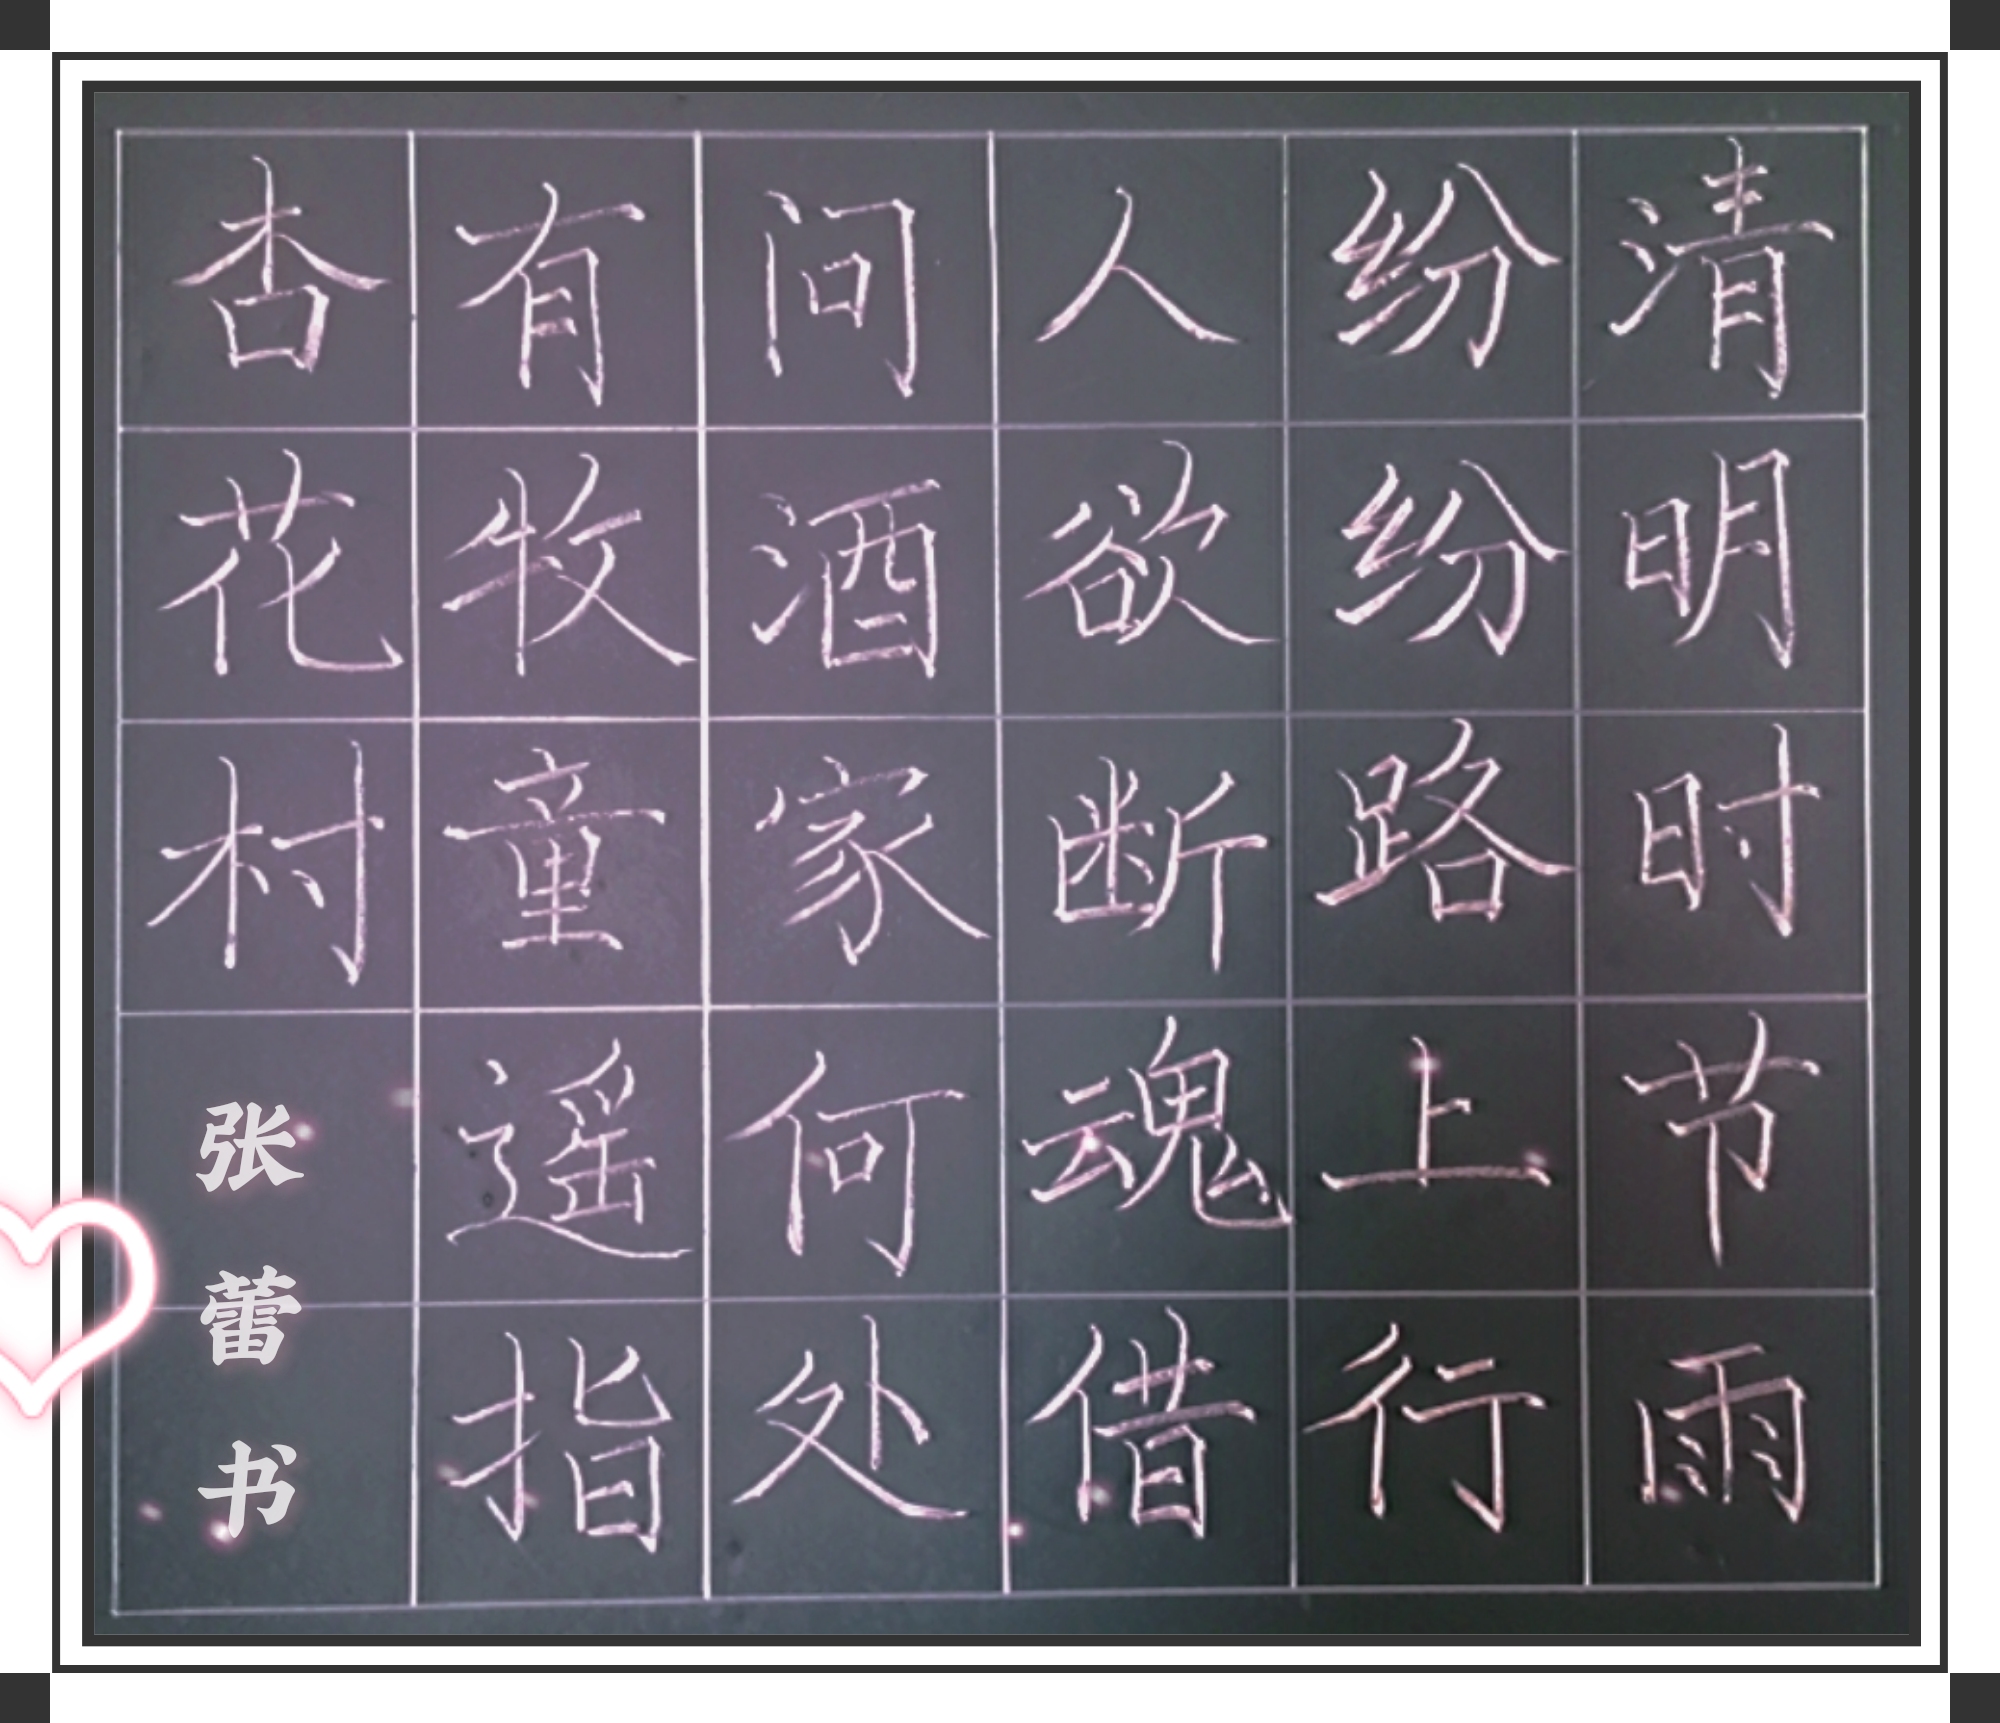 清明时节雨
纷纷路上行
人欲断魂借
问酒家何处
有牧童遥指
杏花村
张蕾书